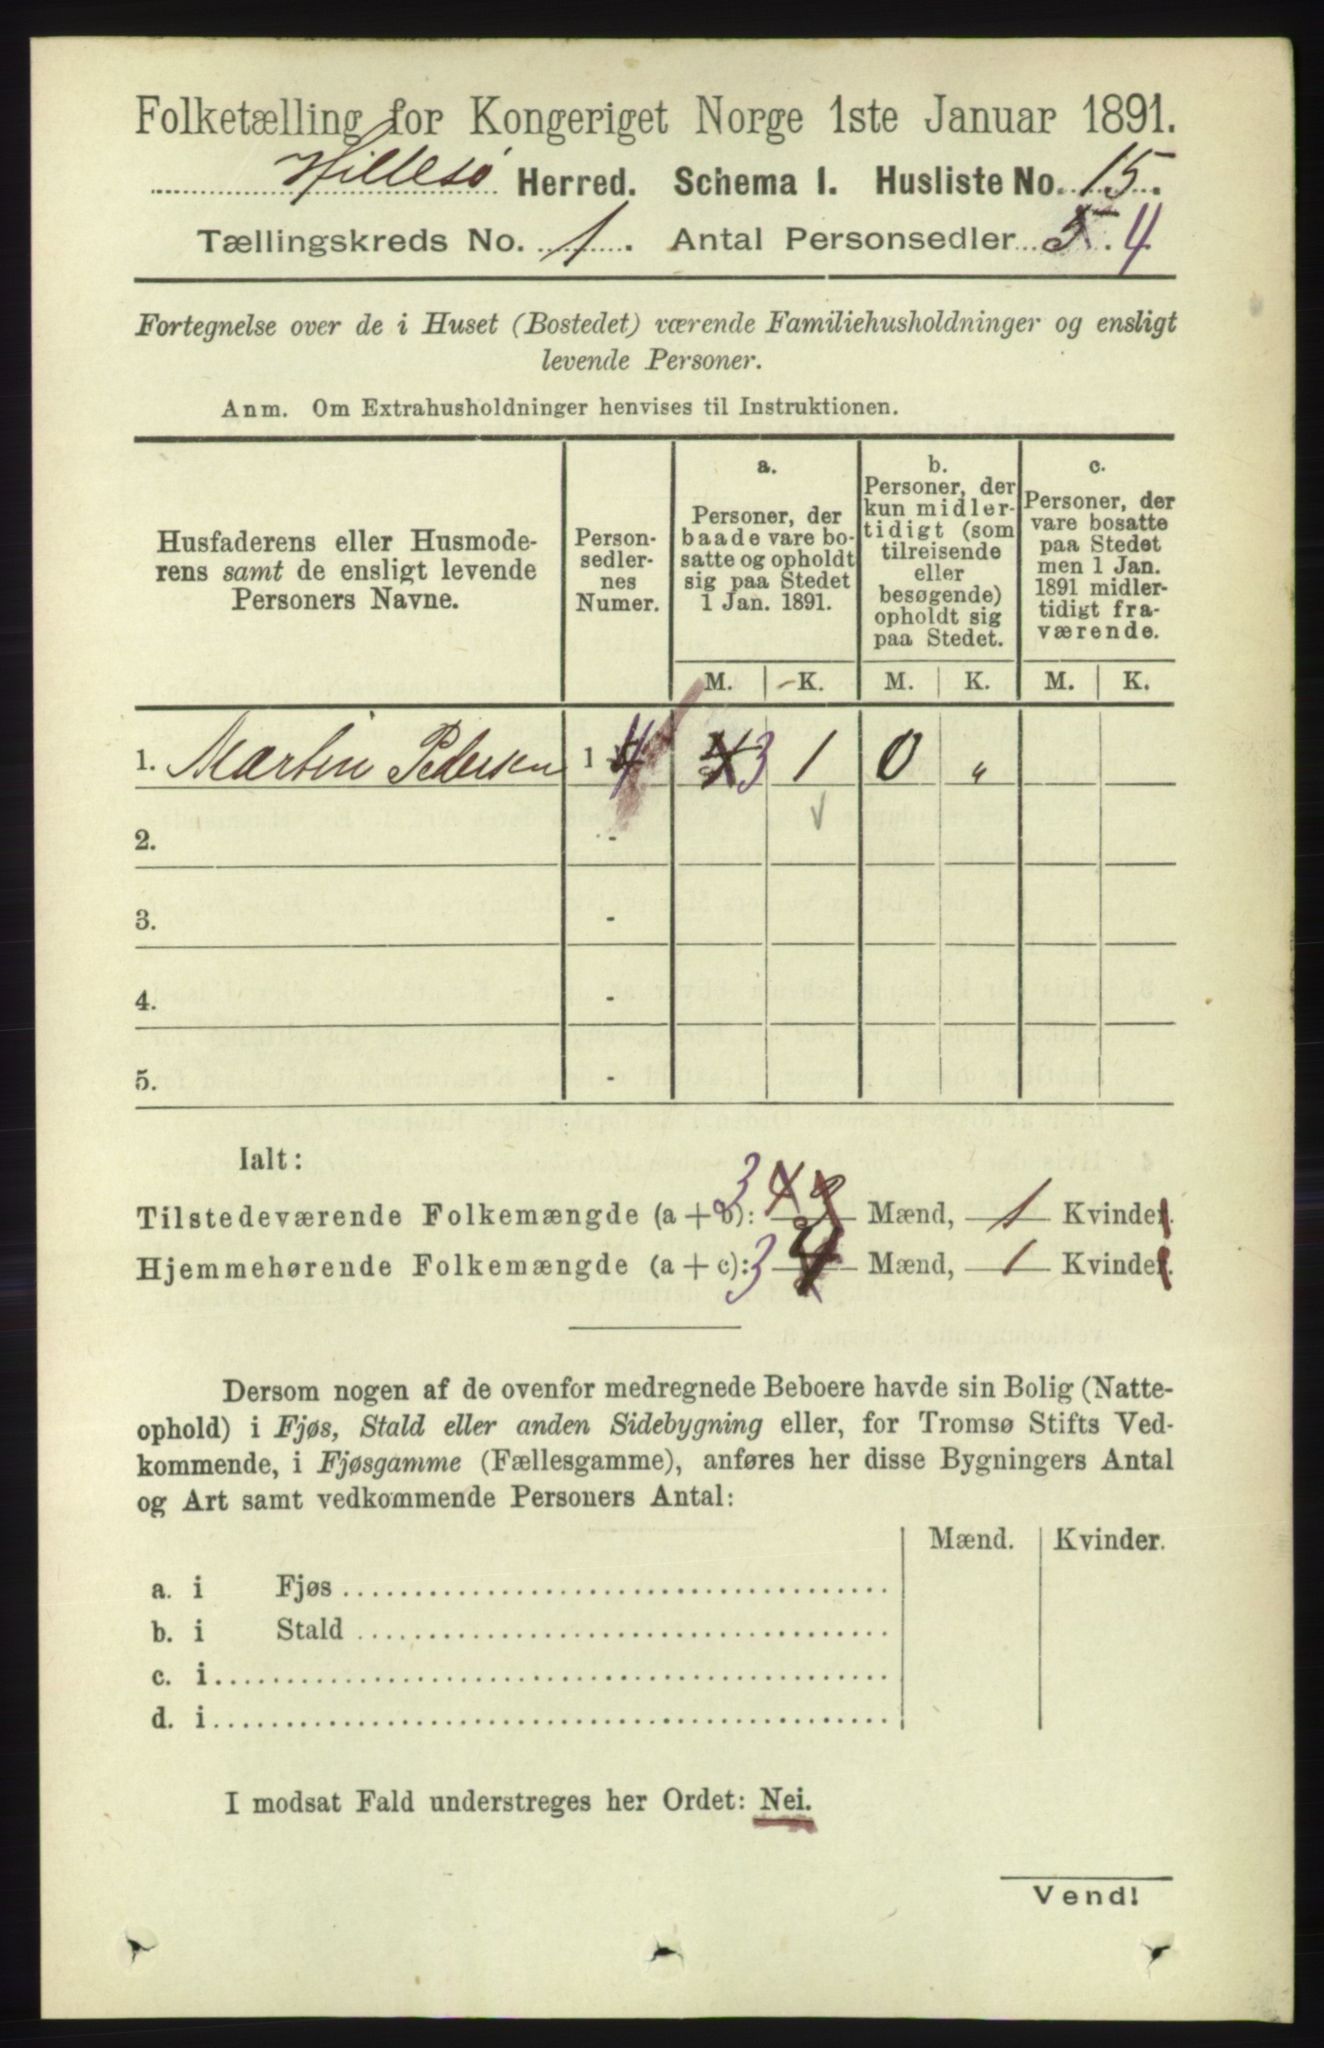 Folketælling for Kongeriget Norge 1ste Januar 1891.
Hillesø Herred. Schema 1. Husliste No. 15.
Tællingskreds No. 1. Antal Personsedler 5. 4
Fortegnelse over de i Huset (Bostedet) værende Familiehusholdninger og ensligt
levende Personer.
Anm. Om Extrahusholdninger henvises til Instruktionen.
Husfaderens eller Husmode-
rens samt de ensligt levende
Personers Navne.
Person-
sedler-
nes
Numer.
a.
Personer, der
baade vare bo-
satte og opholdt
sig paa Stedet
1 Jan. 1891.
b.
Personer, der
kun midler-
tidigt (som
tilreisende
eller
besøgende)
opholdt sig
paa Stedet.
c.
Personer, der
vare bosatte
paa Stedet
men 1 Jan.
1891 midler-
tidigt fra-
værende.
M. K. M. K. M. K.
1. Martin Pedersen 1 4 3 1 0 "
2. -
3. -
4. -
5. -
Ialt:
Tilstedeværende Folkemængde (a + b): 3 Mænd, 1 Kvinder.
Hjemmehørende Folkemængde (a + c): 3 Mænd, 1 Kvinder.
Dersom nogen af de ovenfor medregnede Beboere havde sin Bolig (Natte-
ophold) i Fjøs, Stald eller anden Sidebygning eller, for Tromsø Stifts Ved-
kommende, i Fjøsgamme (Fællesgamme), anføres her disse Bygningers Antal
og Art samt vedkommende Personers Antal:
Mænd. Kvinder.
a. i Fjøs
b. i Stald
c. i
d. i
I modsat Fald understreges her Ordet: Nei.
Vend!